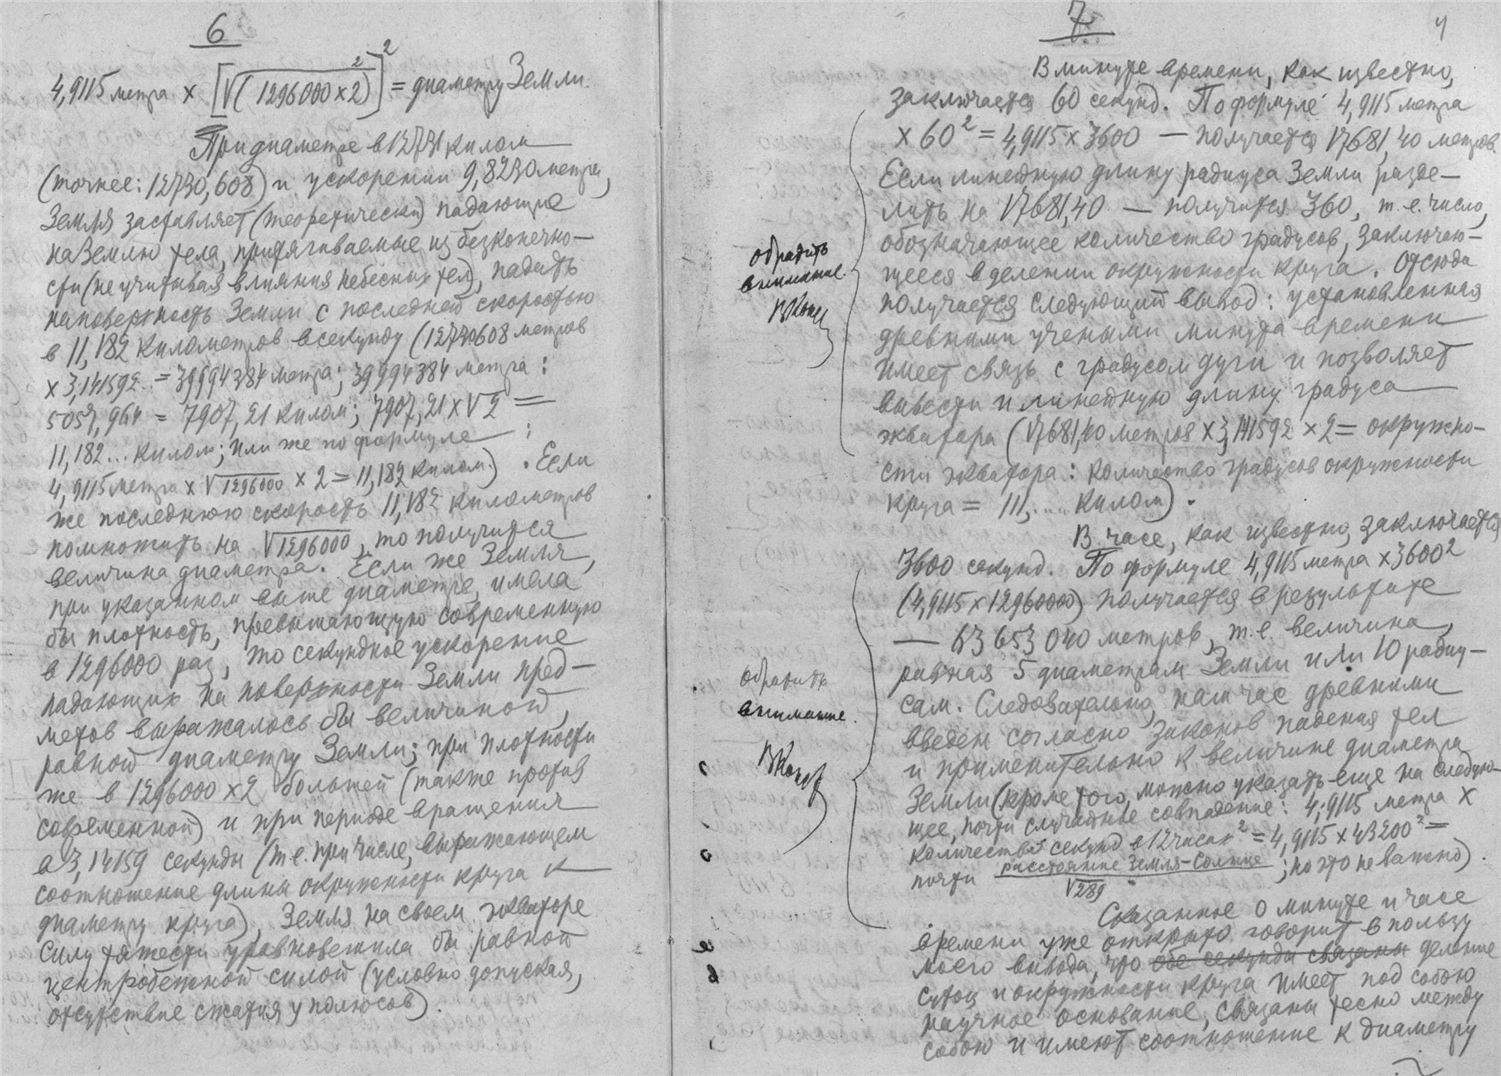 6
4,9115 метра × [√(1296000×2)²]² = диаметру Земли.
При диаметре в 12731 килом
(точнее: 12730,608) и ускорении 9,8230 метра,
Земля заставляет (теоретически) падающие
на Землю тела, притягиваемые из безконечно-
сти (не учитывая влияния небесных тел), падать
на поверхность Земли с последней скоростью
в 11,182 километров в секунду (12730608 метров
× 3,141592.. = 39994384 метра; 39994384 метра :
5057,964 = 7907,21 килом; 7907,21 × √2 =
11,182... килом; или же по формуле :
4,9115 метра × √1296000 × 2 = 11,182 килом.) . Если
же последнюю скорость 11,182 километров
помножить на √1296000, то получится
величина диаметра. Если же Земля,
при указанном выше диаметре, имела
бы плотность, превышающую современную
в 1296000 раз, то секундное ускорение
падающих на поверхности Земли пред-
метов выражалось бы величиной,
равной диаметру Земли; при плотности
же в 1296000×2 большей (также против
современной) и при периоде вращения
в 3,14159 секунды (т.е. при числе, выражающем
соотношение длины окружности круга к
диаметру круга), Земля на своем экваторе
силу тяжести уравновесила бы равной
центробежной силой (условно допуская,
отсутствие сжатия у полюсов).
7
4
В минуте времени, как известно,
заключается 60 секунд. По формуле 4,9115 метра
× 60² = 4,9115 × 3600 — получается 17681,40 метров.
Если линейную длину радиуса Земли разде-
лить на 17681,40 — получится 360, т.е. число,
обозначающее количество градусов, заключаю-
щееся в делении окружности круга. Отсюда
получается следующий вывод: установленная
древними учеными минута времени
имеет связь с градусом дуги и позволяет
вывести и линейную длину градуса
экватора (17681,40 метров × 3,141592 × 2 = окружно-
сти экватора : количество градусов окружности
круга = 111,.... килом) .
обратить
внимание.
В часе, как известно, заключается
3600 секунд. По формуле 4,9115 метра × 3600²
(4,9115 × 12960000) получается в результате
— 63653040 метров, т.е. величина,
равная 5 диаметрам Земли или 10 радиу-
сам. Следовательно, нам час древними
введен согласно законов падения тел
и применительно к величине диаметра
Земли (кроме того, можно указать еще на следую-
щее, почти случайное совпадение: 4,9115 метра ×
количество секунд в 12 часах² = 4,9115 × 43200² =
почти расстояние Земля-Солнце / √289 ; но это не важно).
обратить
внимание.
Сказанное о минуте и часе
времени уже открыто говорит в пользу
моего вывода, что обе секунды связаны деление
суток и окружности круга имеет под собою
научное основание, связаны тесно между
собою и имеют соотношение к диаметру